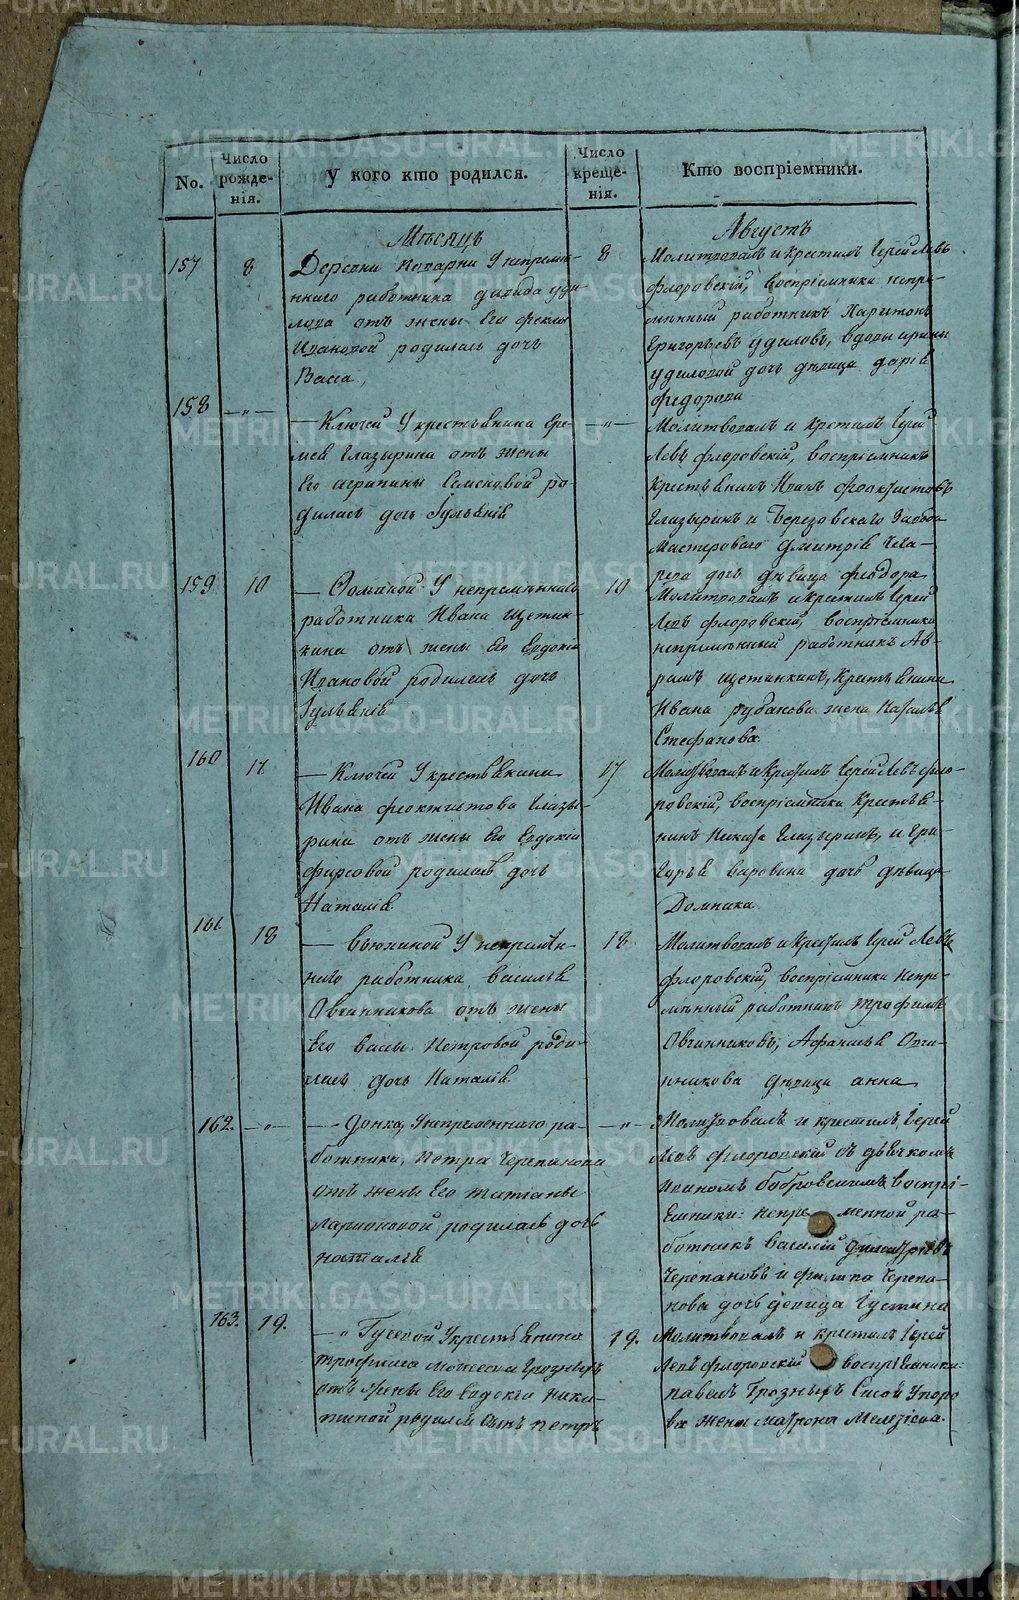 No.
Число рожде-нія.
У кого кто родился.
Число креще-нія.
Кто воспріемники.
Мѣсяцъ
Августъ
157
8
Деревни Поварни У непремѣн-
ннаго работника давида уди-
лова отъ жены Его феклы
Ивановой родилась дочь
Васса,
8
Молитвовалъ и крестилъ Іерей Левъ
флоровскій, воспріемники непре-
мѣнный работникъ Харитонъ
Григорьевъ удиловъ, вдовы ирины
удиловой дочь дѣвица дарія
федорова
158
—"—
— Ключей У крестьянина Ере-
мея Глазырина отъ жены
Его агрипины Семеновой ро-
дилась дочь Іуліанія
—"—
Молитвовалъ и крестилъ Іерей
Левъ флоровскій, воспріемникъ
крестьянинъ Иванъ феоктистовъ
Глазыринъ и Березовскаго Завода
Мастероваго дмитрія
дочь дѣвица феодора
159
10
— У непремѣннаго
работника Ивана Щетин-
кина отъ жены Его Евдокіи
Ивановой родилась дочь
Іуліанія
10
Молитвовалъ и крестилъ Іерей
Левъ флоровскій, воспріемники
непремѣнный работникъ Ав-
рамъ щетинкинъ, крестьянина
Ивана рубакова жена Наталья
Стефанова.
160
17.
— Ключей У крестьянина
Ивана феоктистова Глазы-
рина отъ жены Его Евдокіи
фирсовой родилась дочь
Наталія.
17
Молитвовалъ и крестилъ Іерей Левъ фло-
ровскій, воспріемники Крестья-
нинъ Никита Глазыринъ, и Гри-
горья варовина дочь дѣвица
Домника.
161.
18
— Вьюхиной У непремѣн-
наго работника василья
Овчинникова отъ жены
Его васы Петровой роди-
лась дочь Наталія.
18
Молитвовалъ и крестилъ Іерей Левъ
флоровскій, воспріемники непре-
мѣнный работникъ трофимъ
Овчинниковъ, Афанасья Овчи-
нникова дѣвица анна
162.
—"—
— донка, У непременнаго ра-
ботника, Петра Черепанова
отъ жены Его татьяны
ларионовой родилась дочь
наталія
—"—
Молитвовалъ и крестилъ Іерей
Левъ флоровскій съ дьячкомъ
иваномъ бобровскимъ воспрі-
Емники: непре менной ра-
ботникъ василій дмитріевъ
Черепановъ и филипа Черепа-
нова дочь девица Густина
163.
19.
— " Гусевой У крестьянина
трофима Моисеева Грозныхъ
отъ жены Его Евдокеи ники-
тиной родился сынъ петръ
19.
Молитвовалъ и крестилъ Іерей
Левъ флоровскій воспріемники:
павелъ Грозныхъ
ва жена матрона
METRIKI.GASO-URAL.RU